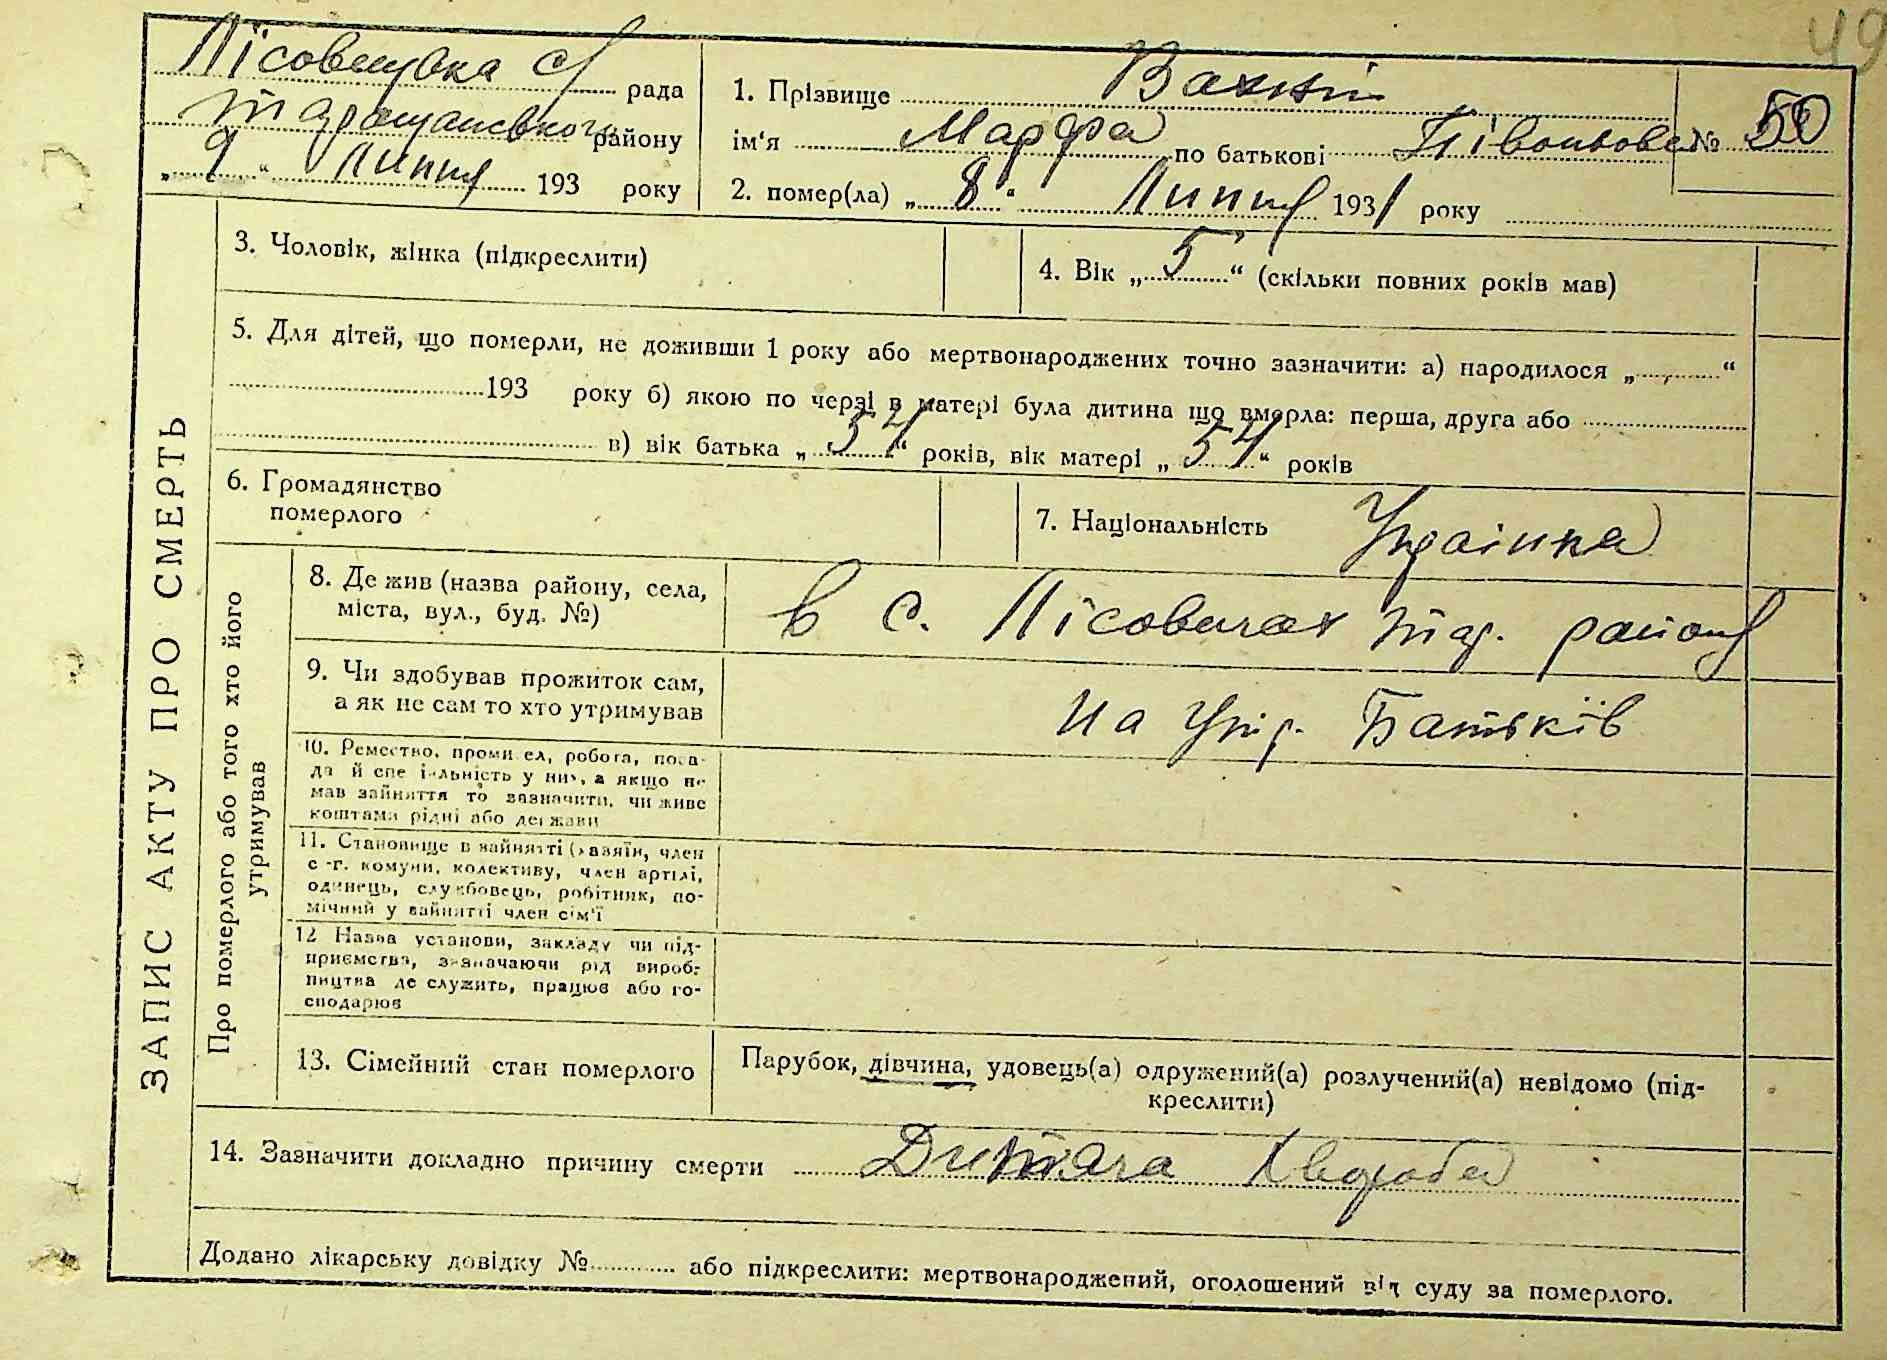 49
Лісовицька с/ рада
Таращанського району
„ 9 “ Липня 193 року
1. Прізвище Вахній
ім‘я Марфа по батькові № 50
2. помер(ла) „ 8 “ Липня 1931 року
ЗАПИС АКТУ ПРО СМЕРТЬ
3. Чоловік, жінка (підкреслити)
4. Вік „ 5 “ (скільки повних років мав)
5. Для дітей, що померли, не доживши 1 року або мертвонароджених точно зазначити: а) народилося „ “
193 року б) якою по черзі в матері була дитина що вмерла: перша, друга або
в) вік батька „ 54 “ років, вік матері „ 54 “ років
6. Громадянство
померлого
7. Національність Українка
Про померлого або того хто його
утримував
8. Де жив (назва району, села,
міста, вул., буд. №)
в с. Лісовичах Тар. району
9. Чи здобував прожиток сам,
а як не сам то хто утримував
На Утр. Батьків
10. Ремество, промисел, робота, поса-
да й спеціяльність у них, а якщо не
мав зайняття то зазначити, чи живе
коштами рідні або держави
11. Становище в зайнятті (хазяїн, член
с.-г. комуни, колективу, член артілі,
одинець, службовець, робітник, по-
мічний у зайнятті член сім‘ї
12 Назва установи, закладу чи під-
приємства, зазначаючи рід вироб-
ництва де служить, працює або го-
сподарює
13. Сімейний стан померлого
Парубок, дівчина, удовець(а) одружений(а) розлучений(а) невідомо (під-
креслити)
14. Зазначити докладно причину смерти Дитяча Хвороба
Додано лікарську довідку № або підкреслити: мертвонароджений, оголошений від суду за померлого.